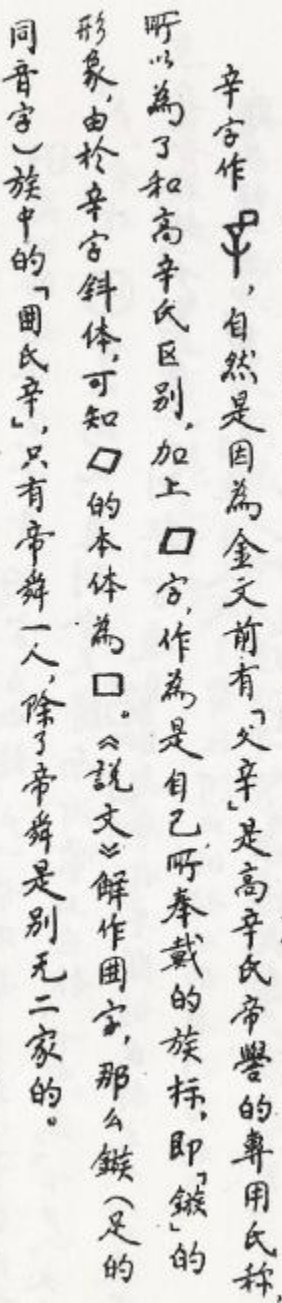 辛字作，自然是因為金文前有「父辛」是高辛氏帝嚳的專用氏称，
所以為了和高辛氏区别，加上▱字，作為是自己所奉戴的族标，即「鏃」的
形象，由於辛字斜体，可知▱的本体為囗。《說文》解作囲字，那么鏃（足的
同音字）族中的「囲氏辛」，只有帝舜一人，除了帝舜是别无二家的。